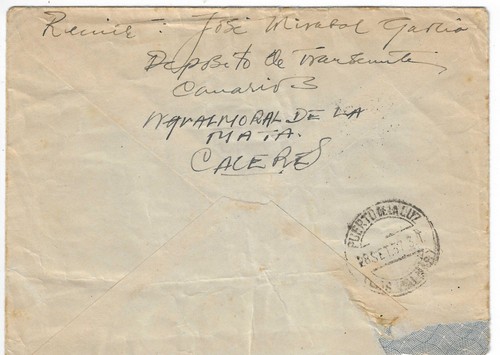 Remite: José Mirabal García
Depósito de Transeuntes
Canarios
NAVALMORAL DE LA
MATA.
CACERES
PUERTO DE LA LUZ
SET.37
(LAS PALMAS)